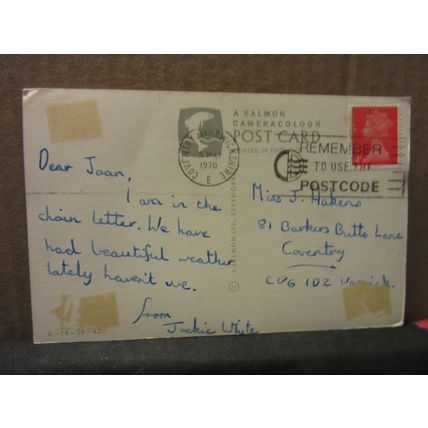 A SALMON
CAMERACOLOUR
POST CARD
PRINTED IN ENGLAND
COVENTRY WARWICKSHIRE
MAY
1970
E
REMEMBER
TO USE THE
POSTCODE
Dear Joan,
I am in the
chain letter. We have
had beautiful weather
lately haven't we.
from
Jackie Whyte
Miss J. Hakens
81 Barkers Butts Lane
Coventry
CV6 1DZ Warwick.
© J. SALMON LTD., SEVENOAKS